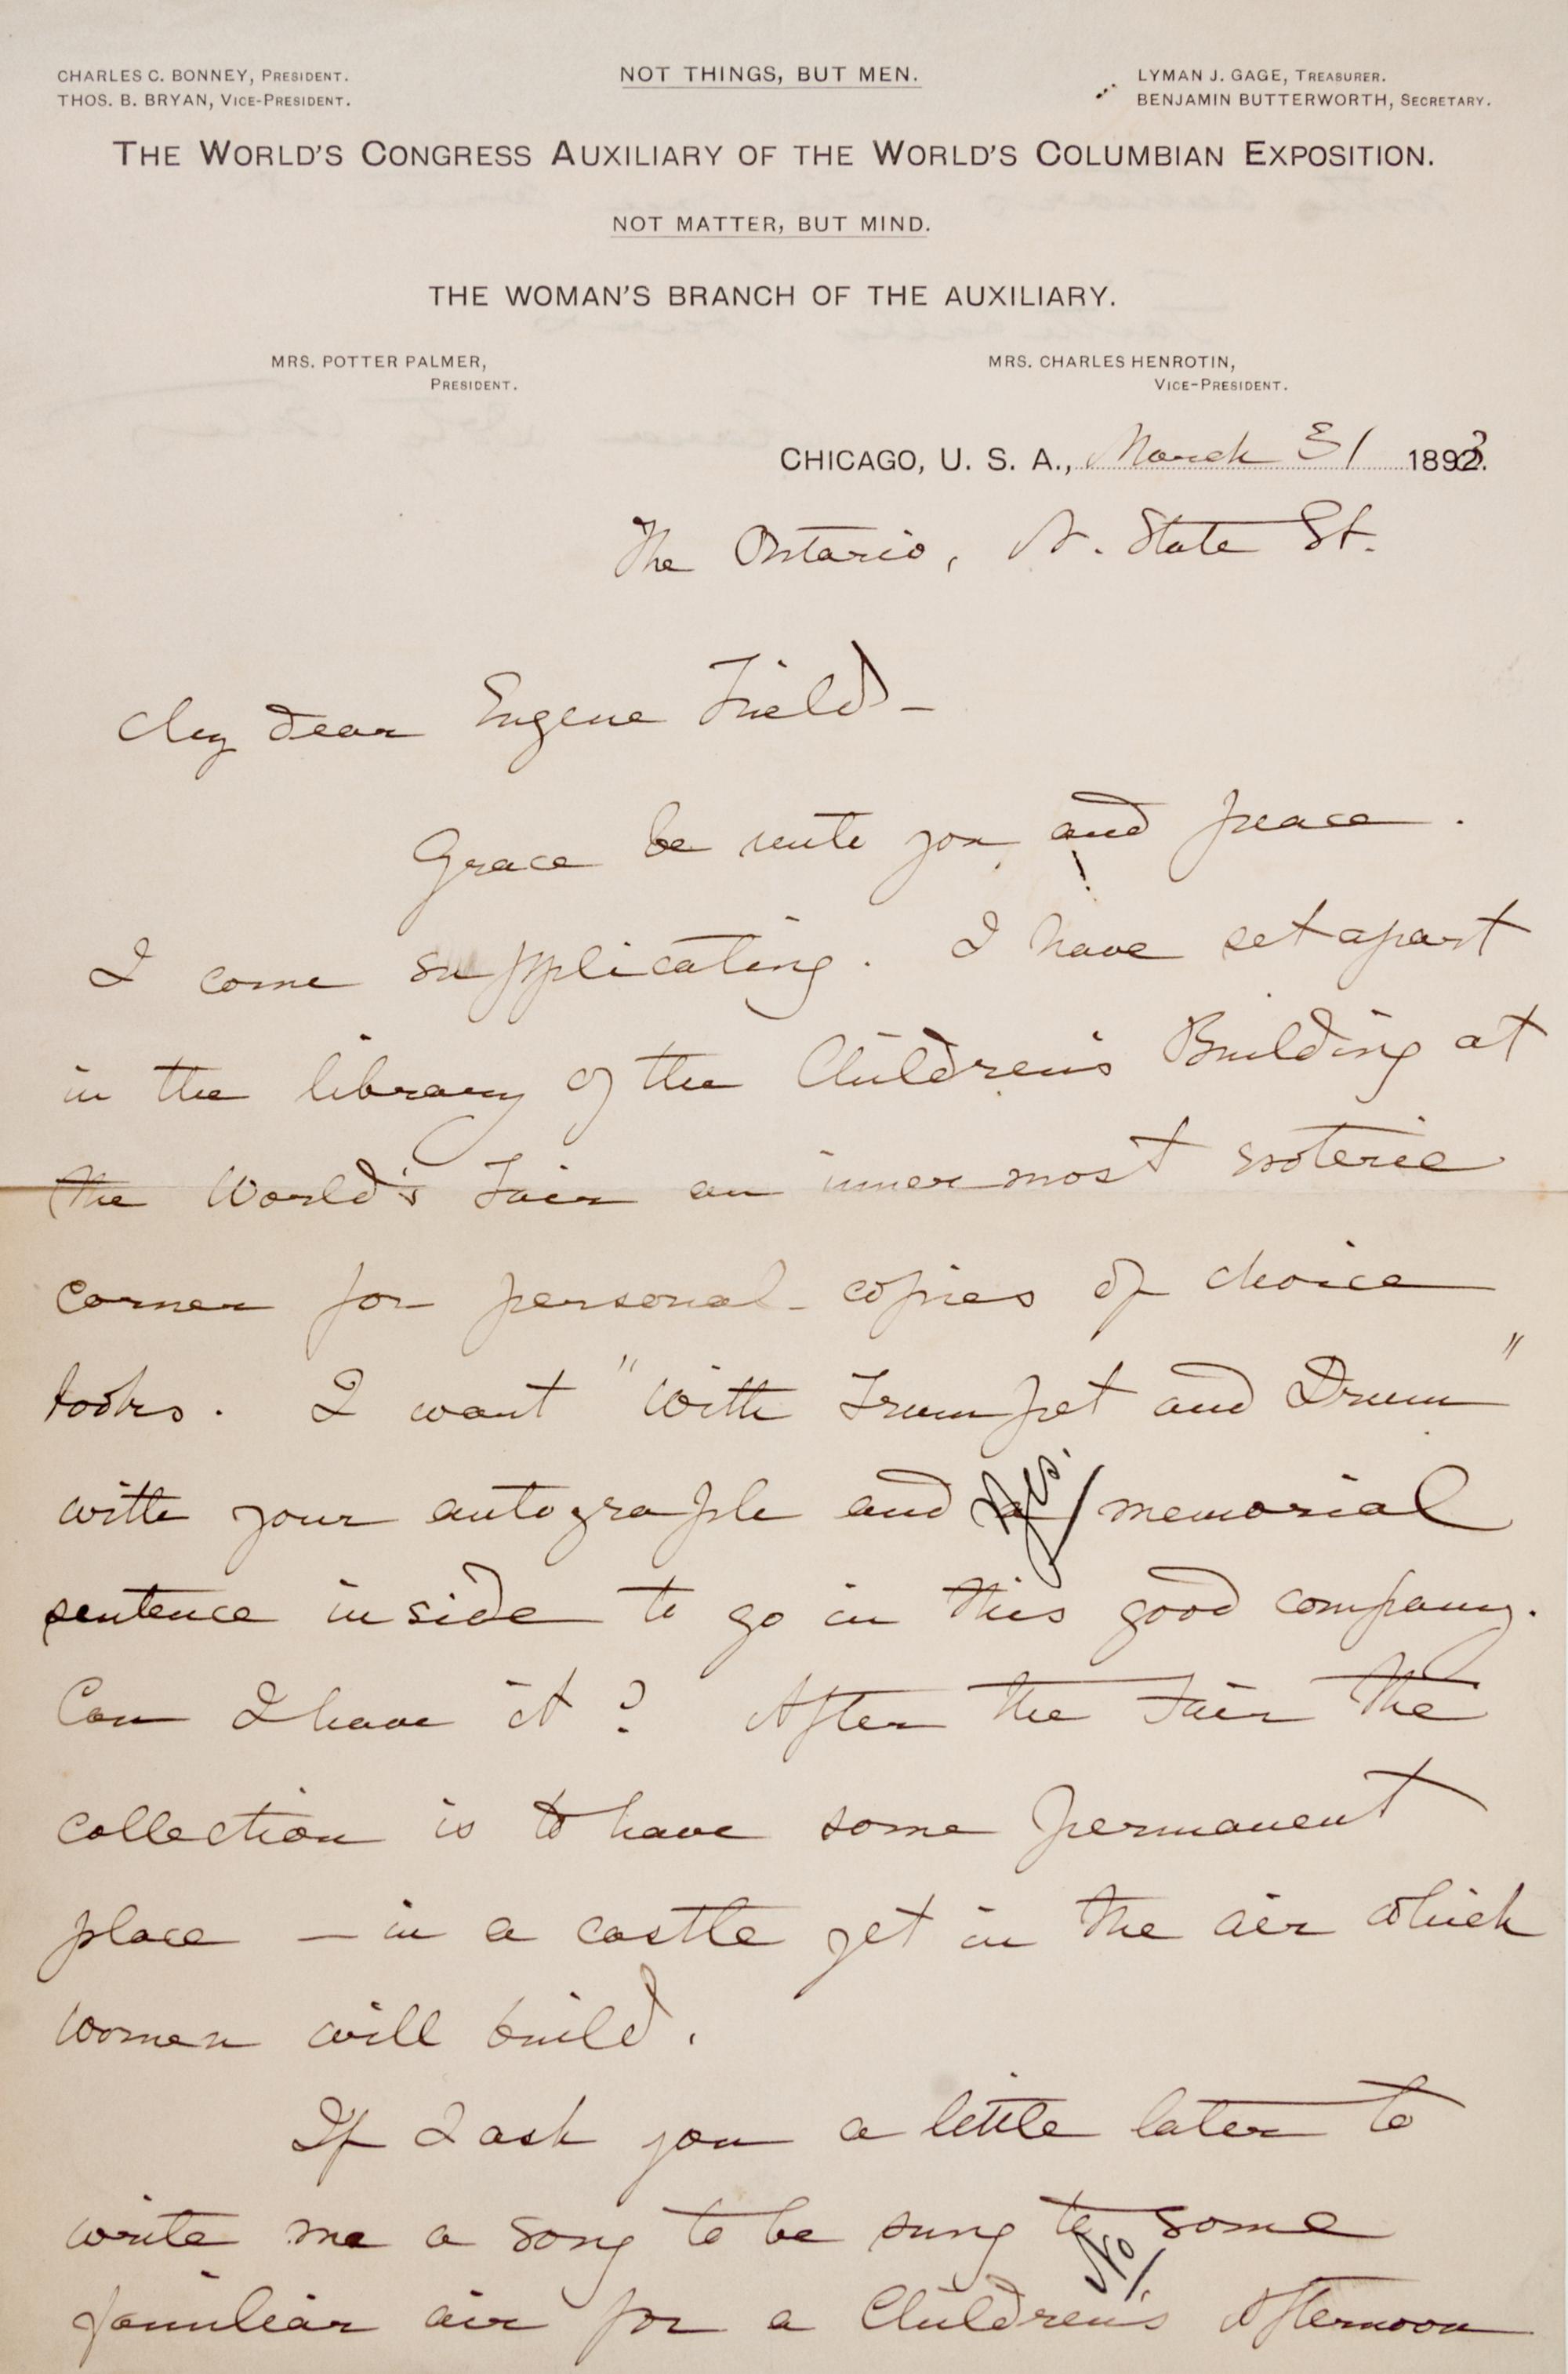 CHARLES C. BONNEY, PRESIDENT.
THOS. B. BRYAN, VICE-PRESIDENT.
NOT THINGS, BUT MEN.
LYMAN J. GAGE, TREASURER.
BENJAMIN BUTTERWORTH, SECRETARY.
THE WORLD'S CONGRESS AUXILIARY OF THE WORLD'S COLUMBIAN EXPOSITION.
NOT MATTER, BUT MIND.
THE WOMAN'S BRANCH OF THE AUXILIARY.
MRS. POTTER PALMER,
PRESIDENT.
MRS. CHARLES HENROTIN,
VICE-PRESIDENT.
CHICAGO, U. S. A., March 31 1893.
The Ontario, N. State St.
My dear Eugene Field –
Grace be unto you and peace.
I come supplicating. I have set apart
in the library of the Children's Building at
the World's Fair an innermost esoteric
corner for personal copies of choice
books. I want "With Trumpet and Drum"
with your autograph and a memorial
sentence inside to go in this good company.
Can I have it? After the Fair the
collection is to have some permanent
place – in a castle yet in the air which
women will build.
If I ask you a little later to
write me a song to be sung to some
familiar air for a Children's Afternoon